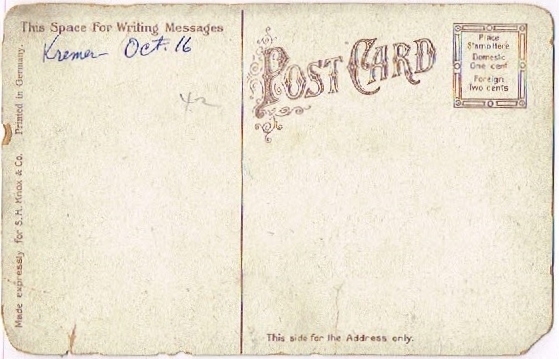 This Space For Writing Messages
Kremer Oct. 16
42
POST CARD
Place
Stamp Here
Domestic
One cent
Foreign
Two cents
Made expressly for S.H. Knox & Co. Printed in Germany.
This side for the Address only.